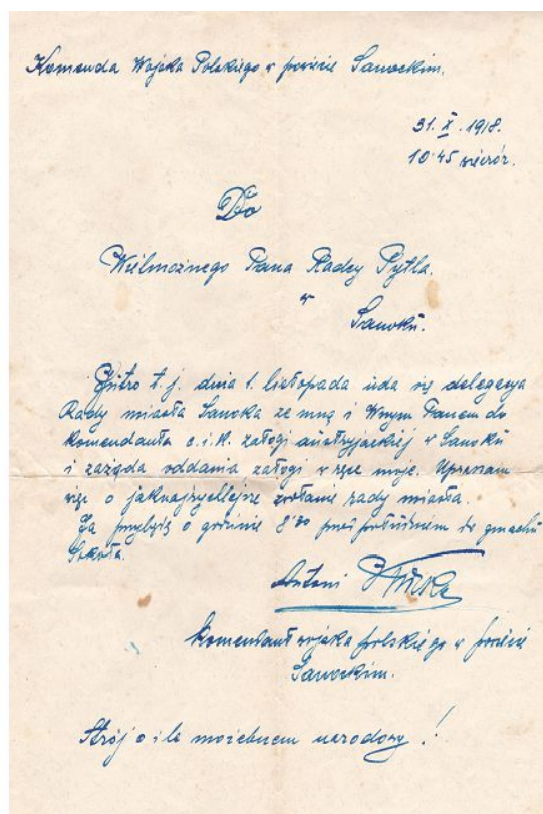 Komenda Wojska Polskiego w powiecie Sanockim.
31. X. 1918.
10.45 wieczór.
Do
Wielmożnego Pana Radcy Pytla.
w
Sanoku.
Jutro t. j. dnia 1. listopada uda się delegacya
Rady miasta Sanoka ze mną i Wnym Panem do
komendanta c. i k. załogi austryjackiej w Sanoku
i zażąda oddania załogi w ręce moje. Upraszam
więc o jaknajrychlejsze zwołanie rady miasta.
Ja przybędę o godzinie 8.30 przed południem do gmachu
Sokoła.
Antoni
Komendant wojska polskiego w powiecie
Sanockim.
Strój o ile możebnem narodowy!